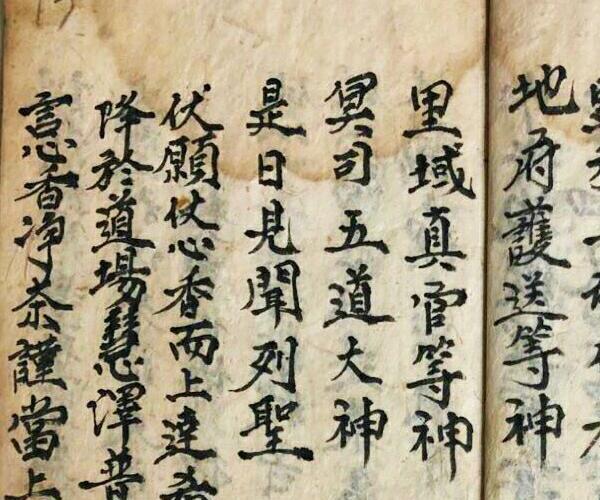 地府護送等神
里域真官等神
冥司五道大神
是日見聞列聖
伏願仗心香而上達
降於道場慧澤普
言心香净茶謹當上